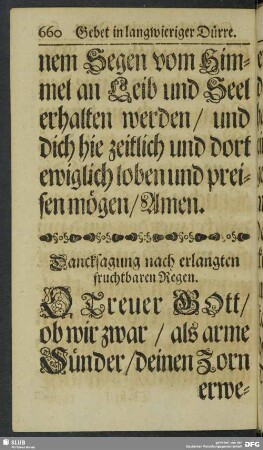 660 Gebet in langwieriger Dürre.
nem Segen vom Him-
mel an Leib und Seel
erhalten werden / und
dich hie zeitlich und dort
ewiglich loben und prei-
sen mögen / Amen.
Dancksagung nach erlangten
fruchtbaren Regen.
O Treuer GOtt /
ob wir zwar / als arme
Sünder / deinen Zorn
erwe-
SLUB
DFG